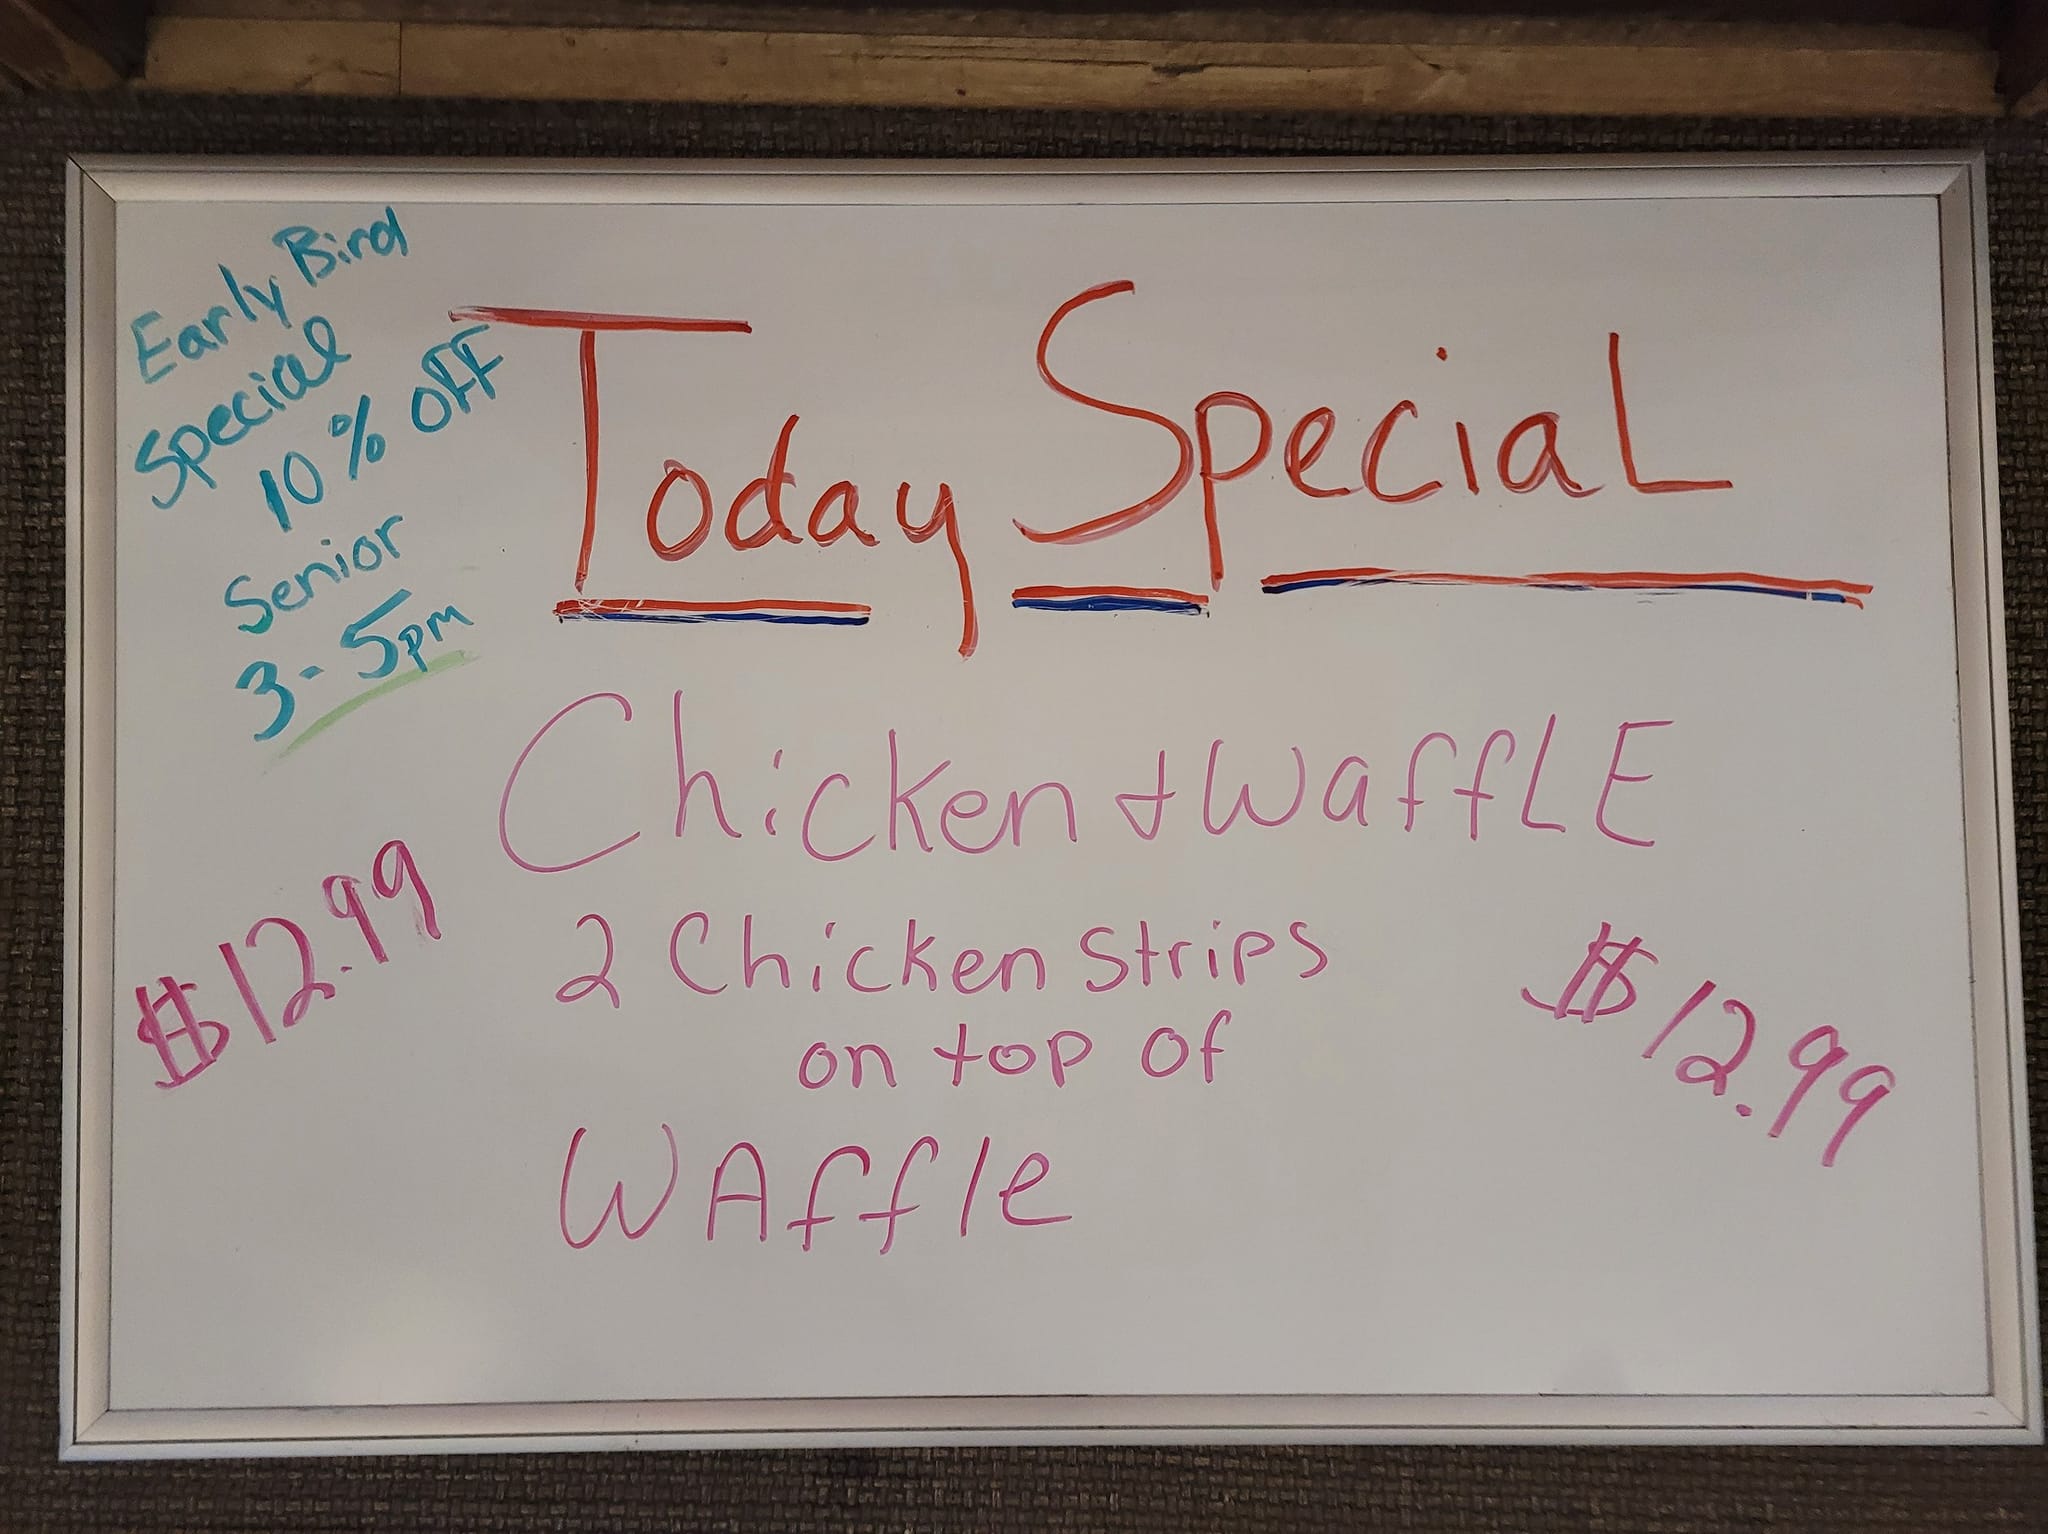 Early Bird
Special
10% OFF
Senior
3-5pm
Today Special
Chicken + WaffLE
$12.99
2 Chicken Strips
on top of
WAffle
$12.99